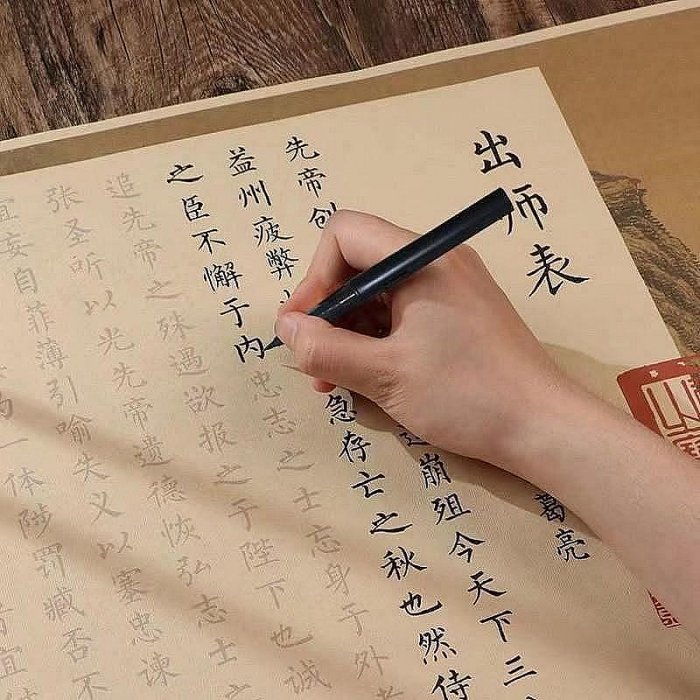 出师表
葛亮
先帝创崩殂今天下三
益州疲弊急存亡之秋也然侍
之臣不懈于内忠志之士忘身于外者
追先帝之殊遇欲报之于陛下也诚
张圣听以光先帝遗德恢弘志士之
宜妄自菲薄引喻失义以塞忠谏
为一体陟罚臧否不
宜